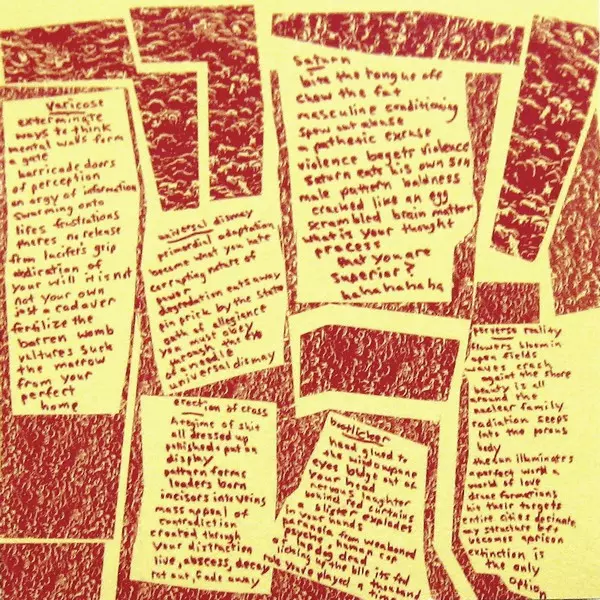 varicose
exterminate
ways to think
mental walls form
a gate
barricade doors
of perception
an orgy of information
swarming onto
lifes frustrations
theres no release
from lucifers grip
abdication of
your will it is not
not your own
just a cadaver
fertilize the
barren womb
vultures suck
the marrow
from your
perfect
home
universal dismay
primordial adaptation
became what you hate
corrupting nature of
power
degredation eats away
pin prick by the state
oath of allegience
you must obey
through the eye
of a needle
universal dismay
Saturn
bite the tongue off
chew the fat
masculine conditioning
spew out abuse
a pathetic excuse
violence begets violence
saturn eats his own son
male pattern baldness
cracked like an egg
scrambled brain matter
what is your thought
process
that you are
superior?
hahahahaha
erection of cross
a regime of shit
all dressed up
polished put on
display
pattern forms
leaders born
incisors into veins
mass appeal of
contradiction
created through
your distraction
live, abscess, decay
rot out, fade away
bootlicker
head glued to
the windowpane
eyes bulge out of
your head
nervous laughter
behind red curtains
a blister explodes
in your hands
paranoia from weaponed
psyche human cop
lapdog dead its fed
licking up the bile
role you've played a thousand
times
perverse reality
flowers bloom in
open fields
waves crash
against the shore
beauty is all
around the
nuclear family
radiation seeps
into the porous
body
the sun illuminates
a perfect world a
world of love
drone formations
his their targets
entire cities
any structure
becomes a prison
extinction is
the only
option